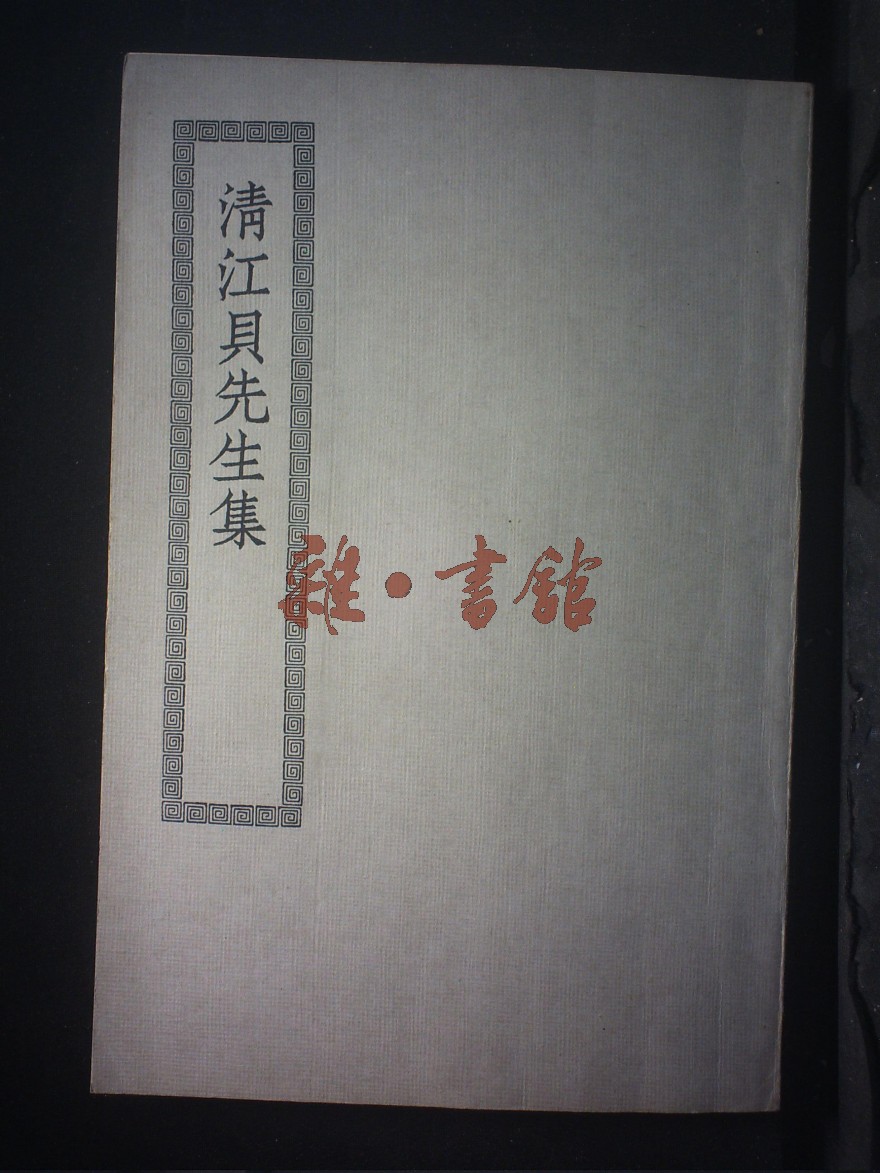 清江貝先生集
雅·書館